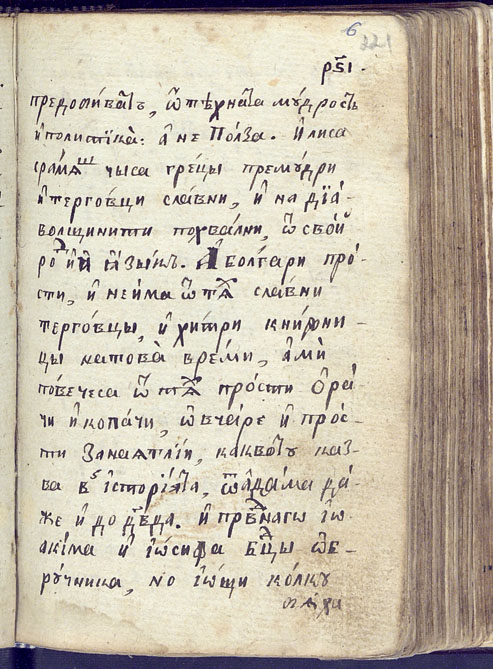 6
221
рѕ҃і.
предочиватъ, ѿ тѣхната мꙋдрость
и политика: а не Полза. И ли са
срамꙗш чи са греци премꙋдри
и терговци славни, и на диа-
волщинити похвални, ѿ свой
род и изыкъ. А болгари про-
сти, и не има ѿ тѧх славни
терговцы, и хитри книжни-
цы на това времи, ами
повече са ѿ тѧх прости ора-
чи и копачи, ѡвчаре и прос-
ти занаѧтлїи, каквото каз-
ва в історїѧта, ѿ адама да-
же и до дв҃да. и праведнаго іѡ-
акима и іѡсифа бц҃ы ѡб-
рꙋчника, но іѡщи колкꙋ